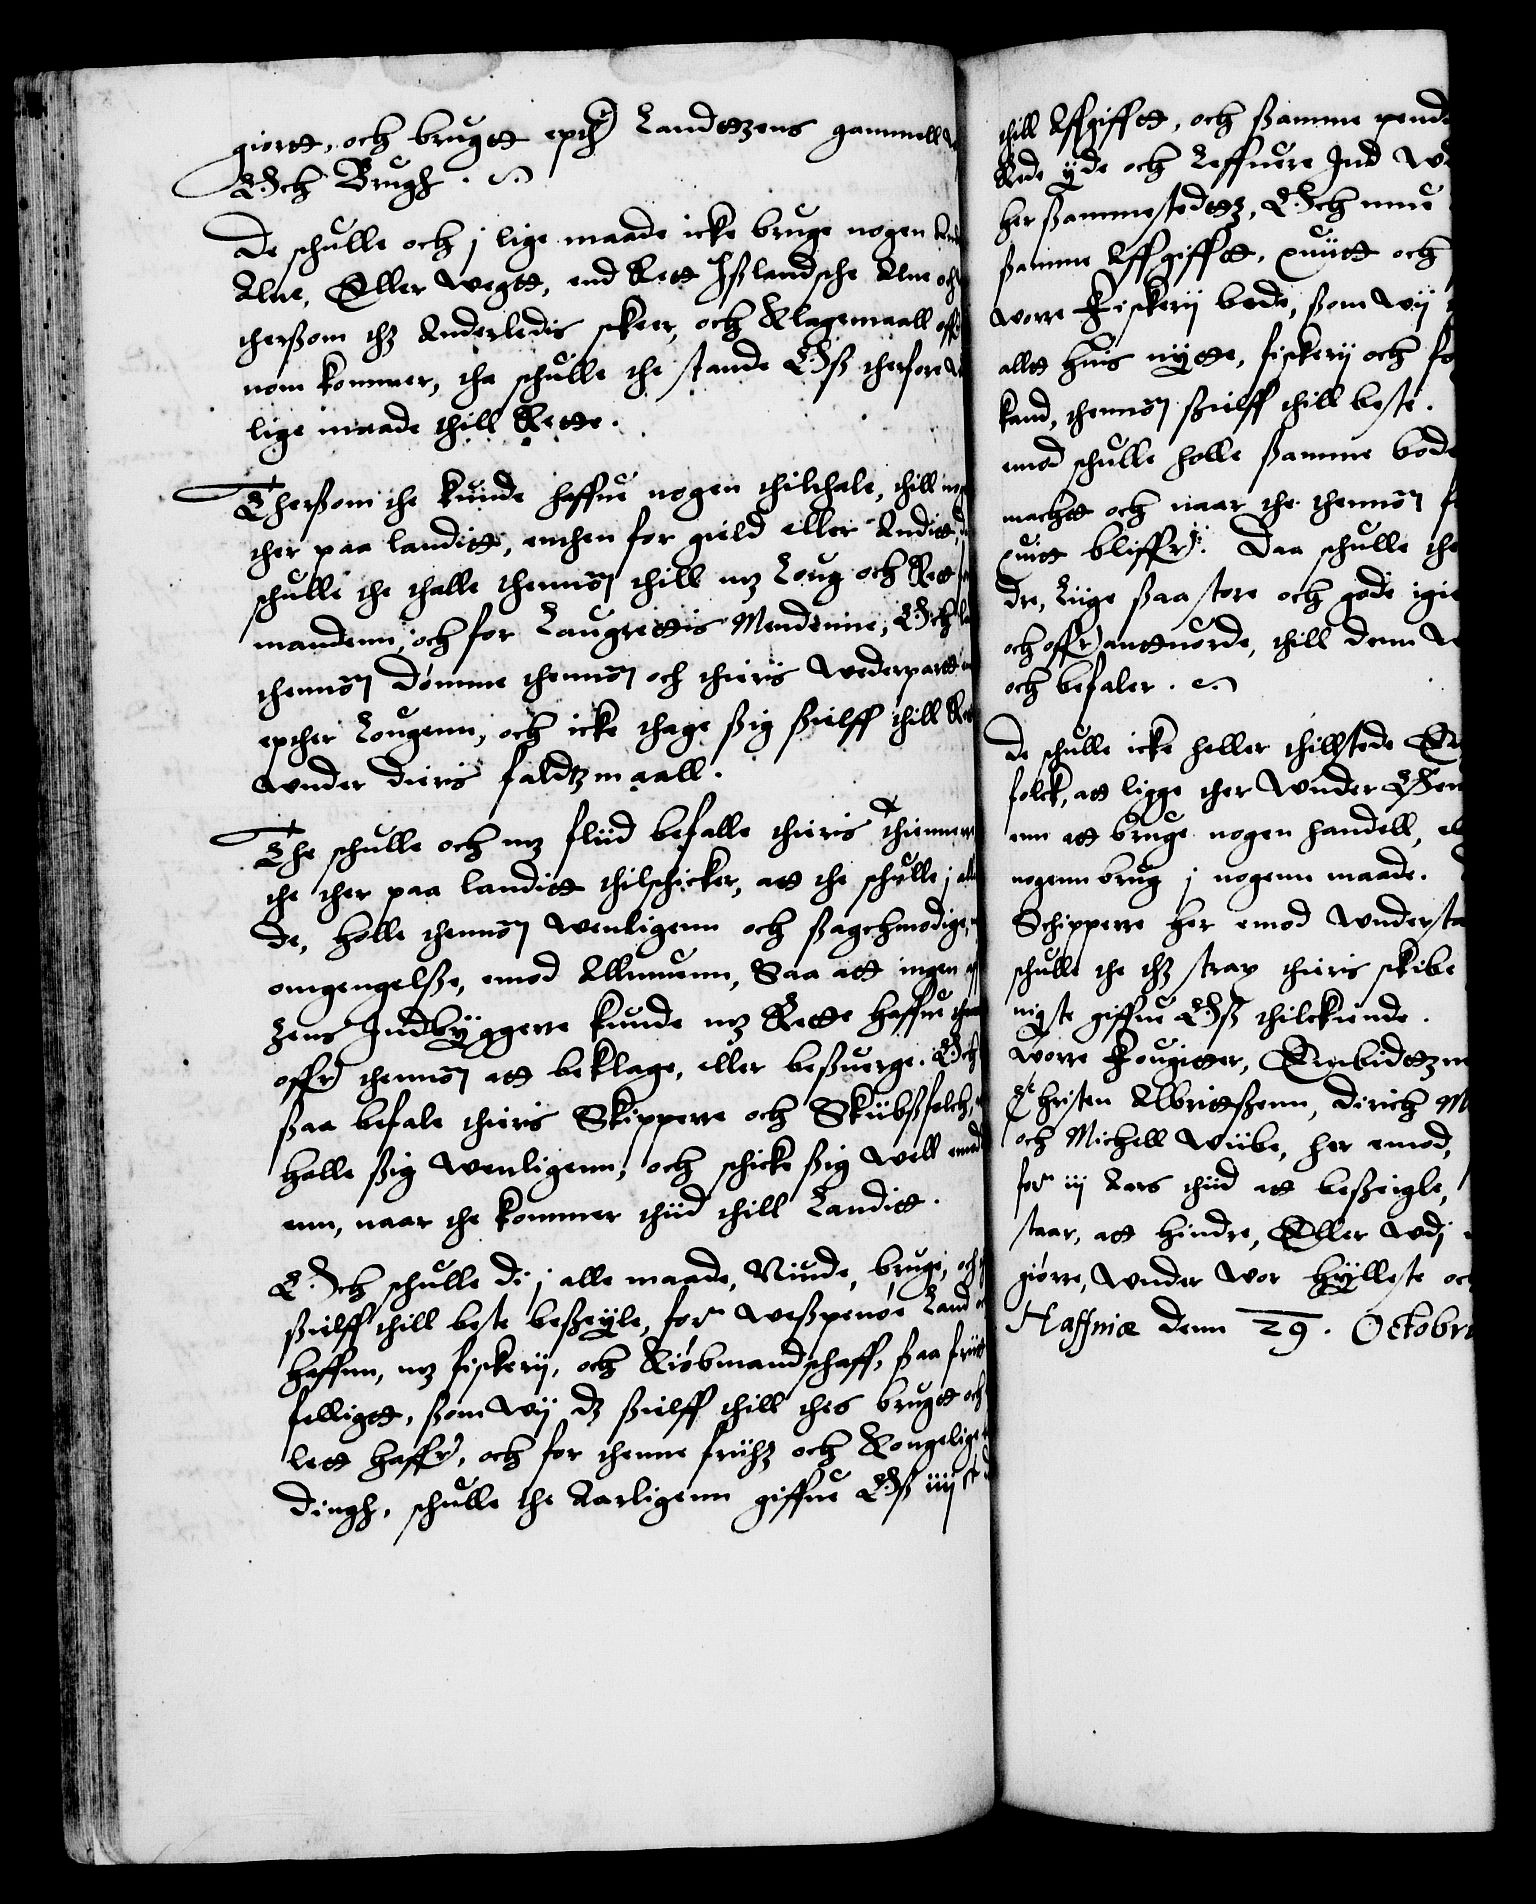 giortt, och brugtt epth Landttzens gammell
Och Brugh.
De schulle och j lige maade icke bruge nogen
Alne, Eller wegtt, end Rett Jßlandsche Alne och
therßom thz Anderledis skeer, och Klagemaall off
nom kommer, tha schulle the stande Oß therfore
lige maade thill Rette.
Therßom the kunde haffue nogen thilthale, thill
ther paa landitt, enthen for gield eller Anditt,
schulle the thalle thennom thill mz Loug och Rett
mandenn, och for Laugrettis Mendenne, Och
thennom Dømme thennom och thieris Wederpartt
epther Lougenn, och icke thage ßig ßielff thill
wnder dieris faldtzmaall.
The schulle och mz fliid befalle thieris thiennere
the ther paa landitt thilschicker, att the schulle j
de, holle thennom Wenligenn och ßagthmodige,
omgengelße, emod Allmuenn, Saa att ingen
zens Indbyggere kunde mz Rette haffue
offr thennom att beklage, eller beßuerge. Och
ßaa befale thieris Skippere och Skiibßfolch,
halle ßig wenligenn, och schicke ßig well emod
enn, naar the kommer thiid thill Landitt.
Och schulle di j alle maade, Niude, bruge, och
ßielff thill beste beßeyle, for Weßpenøe Land
haffnn, mz fiskerij, och Kiøbmandschaff, ßaa friit
felligtt, ßom wij dz ßielff thill thes brugtt och
lett haffr, och for thenne friihz och Kongelige
dingh, schulle the Aarligenn giffue Oß iiij
thill Affgifftt, och ßamme pend
Rede yde och Leffuere Ind
her ßammestedttz, Och mue
ßamme Affgifftt, quiitt och
worre Fiskerij bode, ßom wij
altt huis nytte, fiskerij och
kand, thennom ßielff thill beste.
emod schulle holle ßamme bode
machtt och naar the thennom
quitt bliffr. Daa schulle the
dre, Liige ßaa store och gode igie
och offr anttuorde, thill denn
och befaler.
De schulle icke heller thillstede
folck, att ligge ther Wnder
enn att bruge nogen handell,
nogenn brug j nogenn maade.
Schippere her emod Wndersta
schulle the thz strax thieris skibe
nigste giffue Oß thilckiende.
Worre Fougitter, Embidttzm
Christen Albrittßenn, Dirich M
och Michell Wiibe, her emod,
for iij Aars thiid att beßeigle,
staar, att hindre, Eller wdj
giørre, Wnder Wor hylleste
Haffniæ denn 29. Octobri